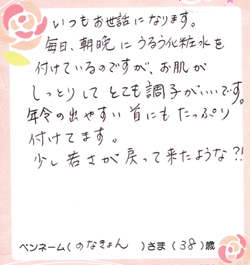 いつもお世話になります。
毎日、朝晩にうるう化粧水を
付けているのですが、お肌が
しっとりしてとても調子がいいです。
年令の出やすい首にもたっぷり
付けてます。
少し若さが戻って来たような?!
ペンネーム(のなきょん)さま(38)歳